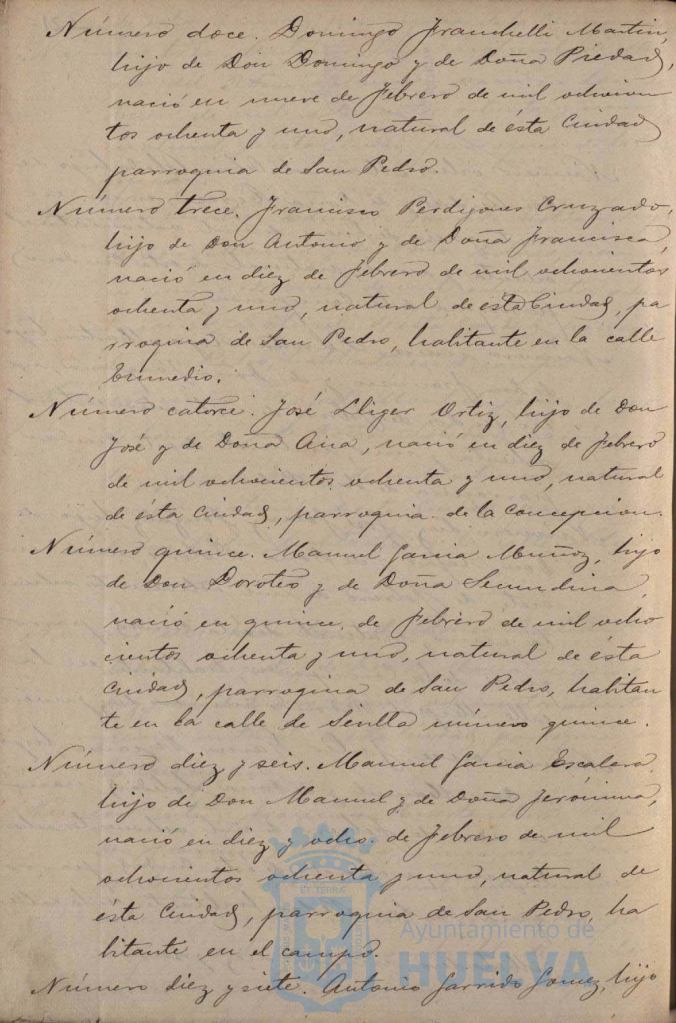 Número doce. Domingo Franchelli Martin,
hijo de Don Domingo y de Doña Piedad,
nació en nueve de Febrero de mil ochocien
tos ochenta y uno, natural de ésta Ciudad
parroquia de San Pedro.
Número trece. Francisco Perdigones Cruzado,
hijo de Don Antonio y de Doña Francisca,
nació en diez de Febrero de mil ochocientos
ochenta y uno, natural de ésta Ciudad, pa
rroquia de San Pedro, habitante en la calle
Enmedio.
Número catorce. José Lliger Ortiz, hijo de Don
José y de Doña Ana, nació en diez de Febrero
de mil ochocientos ochenta y uno, natural
de ésta Ciudad, parroquia de la Concepcion.
Número quince. Manuel Garcia Muñoz, hijo
de Don Doroteo y de Doña Secundina,
nació en quince de Febrero de mil ocho
cientos ochenta y uno, natural de ésta
Ciudad, parroquia de San Pedro, habitan
te en la calle de Sevilla número quince.
Número diez y seis. Manuel Garcia Escalera,
hijo de Don Manuel y de Doña Jerónima,
nació en diez y ocho de Febrero de mil
ochocientos ochenta y uno, natural de
ésta Ciudad, parroquia de San Pedro, ha
bitante en el campo.
Número diez y siete. Antonio Garrido Gomez, hijo
ET TERRÆ
Ayuntamiento de
HUELVA